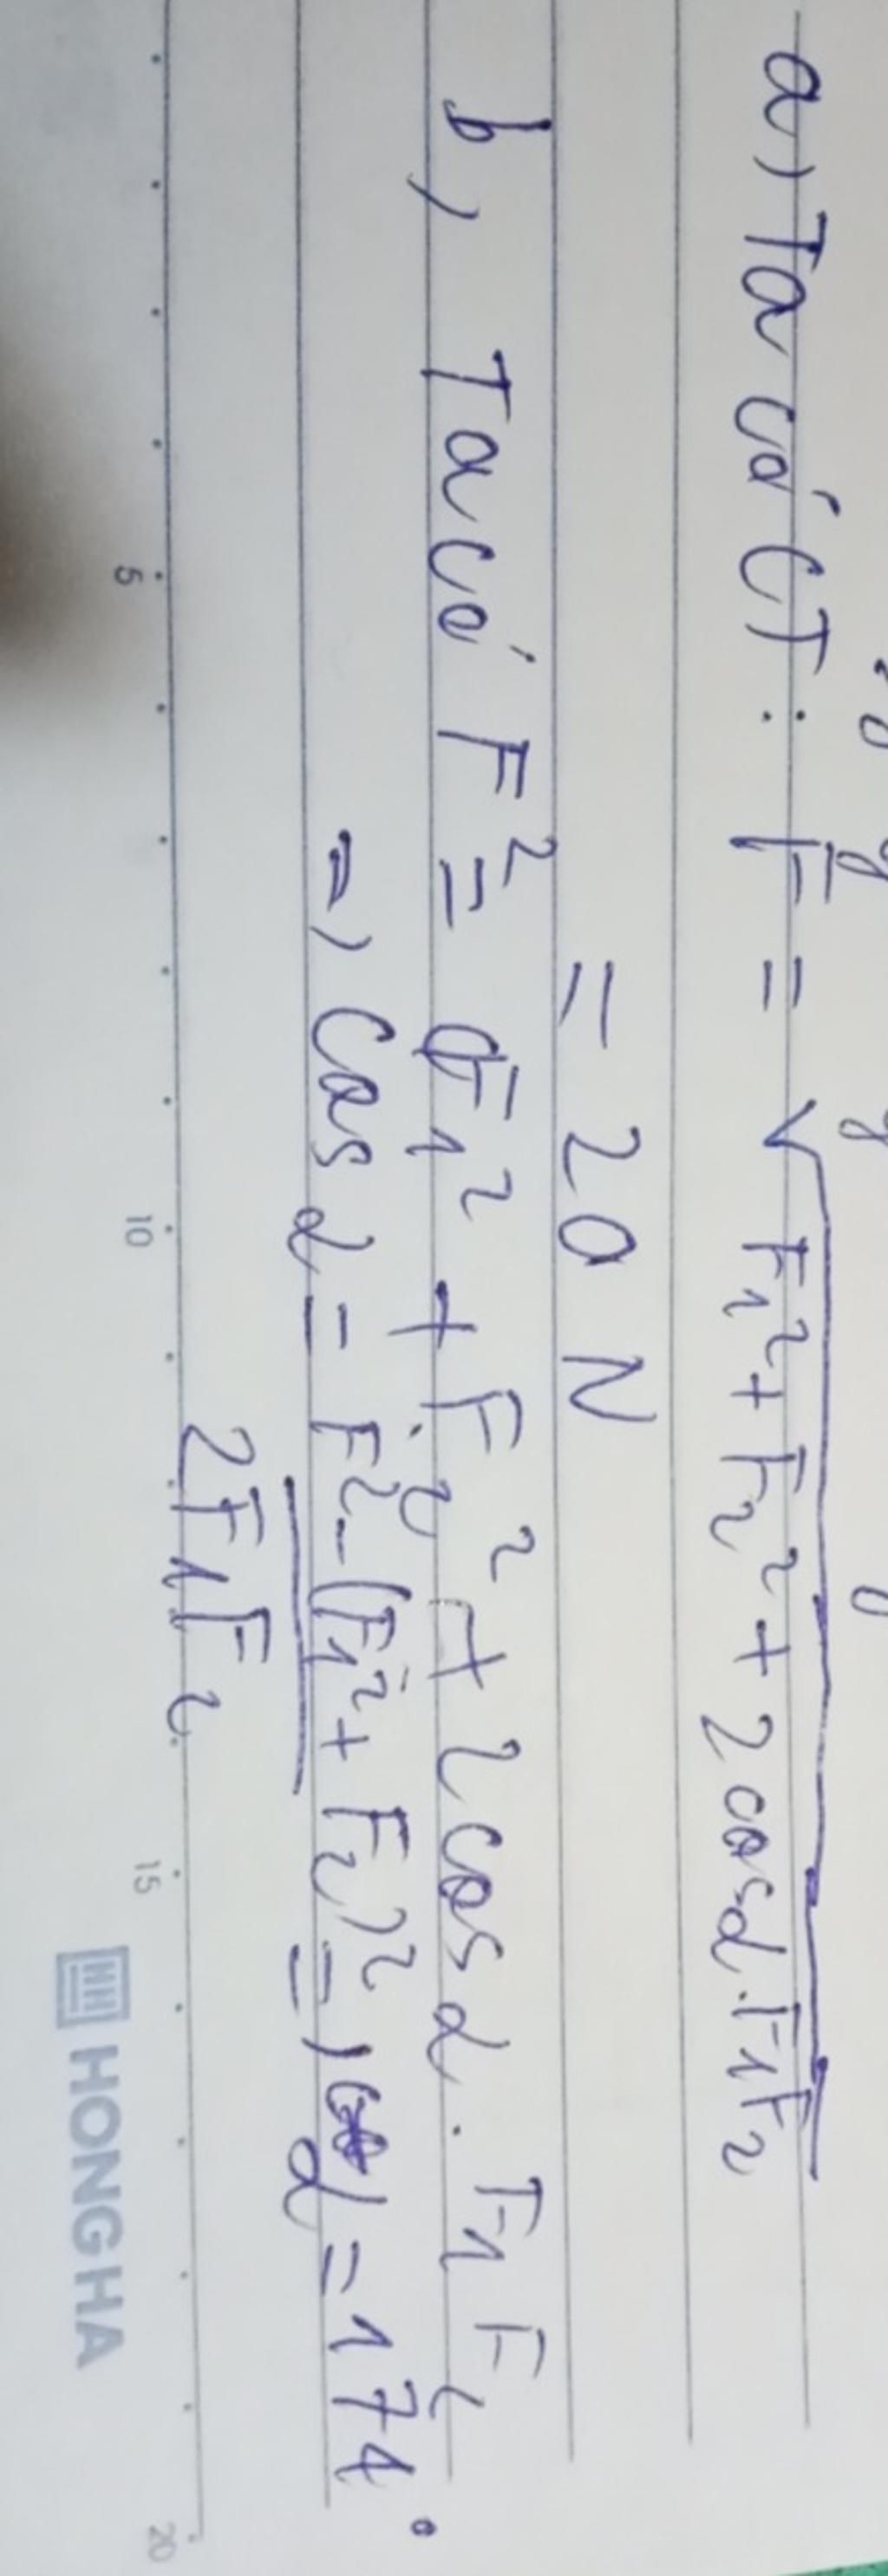 a, Ta có CT: F = √F₁² + F₂² + 2 cosα. F₁F₂
= 20 N
b, Ta có F² = F₁² + F₂² + 2 cosα. F₁F₂
=) Cosα = F² - (F₁² + F₂)² =) α = 174°
2F₁F₂
5 10 15 20
HONG HA